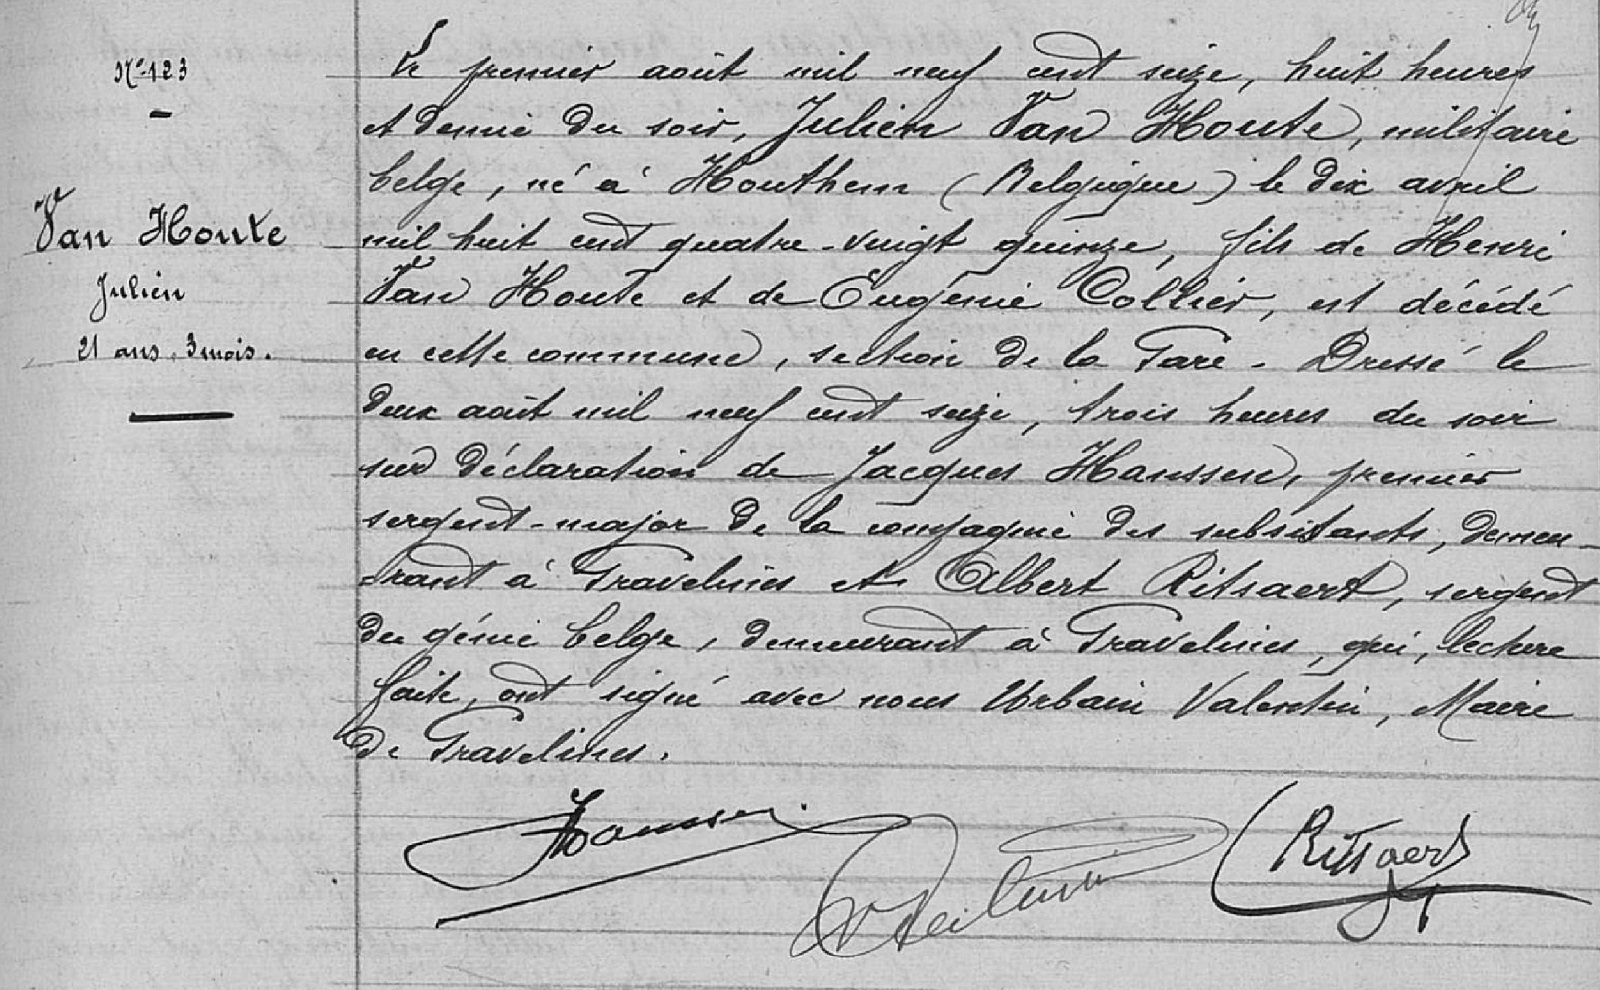 N° 123
Van Houte
Julien
21 ans, 3 mois.
Le premier août mil neuf cent seize, huit heures
et demie du soir, Julien Van Houte, militaire
belge, né à Houthem (Belgique) le dix avril
mil huit cent quatre-vingt quinze, fils de Henri
Van Houte et de Eugénie Collier, est décédé
en cette commune, section de la Gare. Dressé le
deux août mil neuf cent seize, trois heures du soir
sur déclaration de Jacques Hanssen, premier
sergent-major de la compagnie des subsistants, demeu-
rant à Gravelines et Albert Ritsaert, sergent
du génie belge, demeurant à Gravelines, qui, lecture
faite, ont signé avec nous Urbain Valentin, Maire
de Gravelines.
Hanssen
Ritsaert